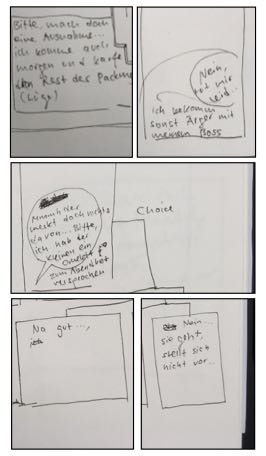 Bitte, mach doch
eine Ausnahme...
ich komme auch
morgen und kaufe
den Rest der Packung
(Lüge)
Nein,
tut mir
leid...
ich bekomm
sonst Ärger mit
meinem Boss
merkt doch nichts
davon... Bitte,
ich hab der
kleinen ein
Omelett
zum Abendbrot
versprochen
Choice
Na gut...,
Nein...
sie geht,
stellt sich
nicht vor...